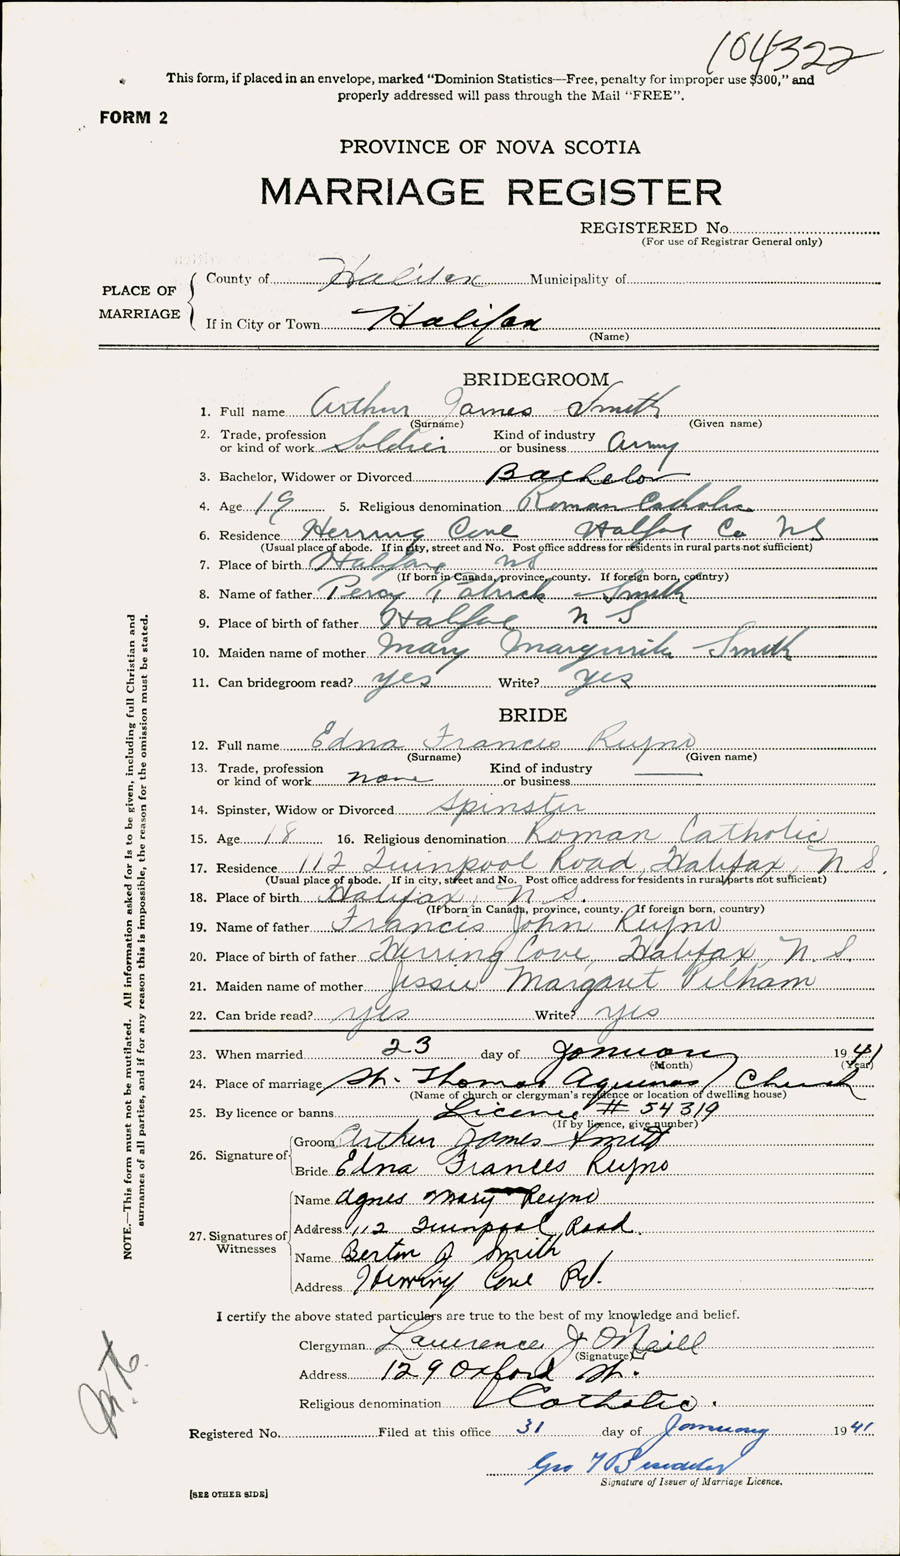 104322
This form, if placed in an envelope, marked "Dominion Statistics—Free, penalty for improper use $300," and
properly addressed will pass through the Mail "FREE".
FORM 2
PROVINCE OF NOVA SCOTIA
MARRIAGE REGISTER
REGISTERED No.
(For use of Registrar General only)
PLACE OF MARRIAGE
County of Halifax Municipality of
If in City or Town Halifax
(Name)
BRIDEGROOM
1. Full name Arthur James Smith
(Surname) (Given name)
2. Trade, profession or kind of work Soldier Kind of industry or business Army
3. Bachelor, Widower or Divorced Bachelor
4. Age 19 5. Religious denomination Roman Catholic
6. Residence Herring Cove Halifax Co NS
(Usual place of abode. If in city, street and No. Post office address for residents in rural parts not sufficient)
7. Place of birth Halifax NS
(If born in Canada, province, county. If foreign born, country)
8. Name of father Percy Patrick Smith
9. Place of birth of father Halifax N S
10. Maiden name of mother Mary Margurite Smith
11. Can bridegroom read? yes Write? yes
BRIDE
12. Full name Edna Francis Reyno
(Surname) (Given name)
13. Trade, profession or kind of work none Kind of industry or business
14. Spinster, Widow or Divorced Spinster
15. Age 18 16. Religious denomination Roman Catholic
17. Residence 112 Quinpool Road, Halifax, N.S.
(Usual place of abode. If in city, street and No. Post office address for residents in rural parts not sufficient)
18. Place of birth Halifax, N.S.
(If born in Canada, province, county. If foreign born, country)
19. Name of father Francis John Reyno
20. Place of birth of father Herring Cove, Halifax, N.S.
21. Maiden name of mother Jessie Margaret Pelham
22. Can bride read? yes Write? yes
23. When married 23 day of January 1941
(Month) (Year)
24. Place of marriage St. Thomas Aquinas Church
(Name of church or clergyman's residence or location of dwelling house)
25. By licence or banns Licence # 54319
(If by licence, give number)
26. Signature of Groom Arthur James Smith
Bride Edna Frances Reyno
27. Signatures of Witnesses
Name Agnes Mary Reyno
Address 112 Quinpool Road.
Name Berton J Smith
Address Herring Cove Rd.
I certify the above stated particulars are true to the best of my knowledge and belief.
Clergyman Lawrence J O'Neill
(Signature)
Address 129 Oxford St.
Religious denomination Catholic.
Registered No. Filed at this office 31 day of January 1941
Geo
Signature of Issuer of Marriage Licence.
[SEE OTHER SIDE]
NOTE.—This form must not be mutilated. All information asked for is to be given, including full Christian and
surnames of all parties, and if for any reason this is impossible, the reason for the omission must be stated.